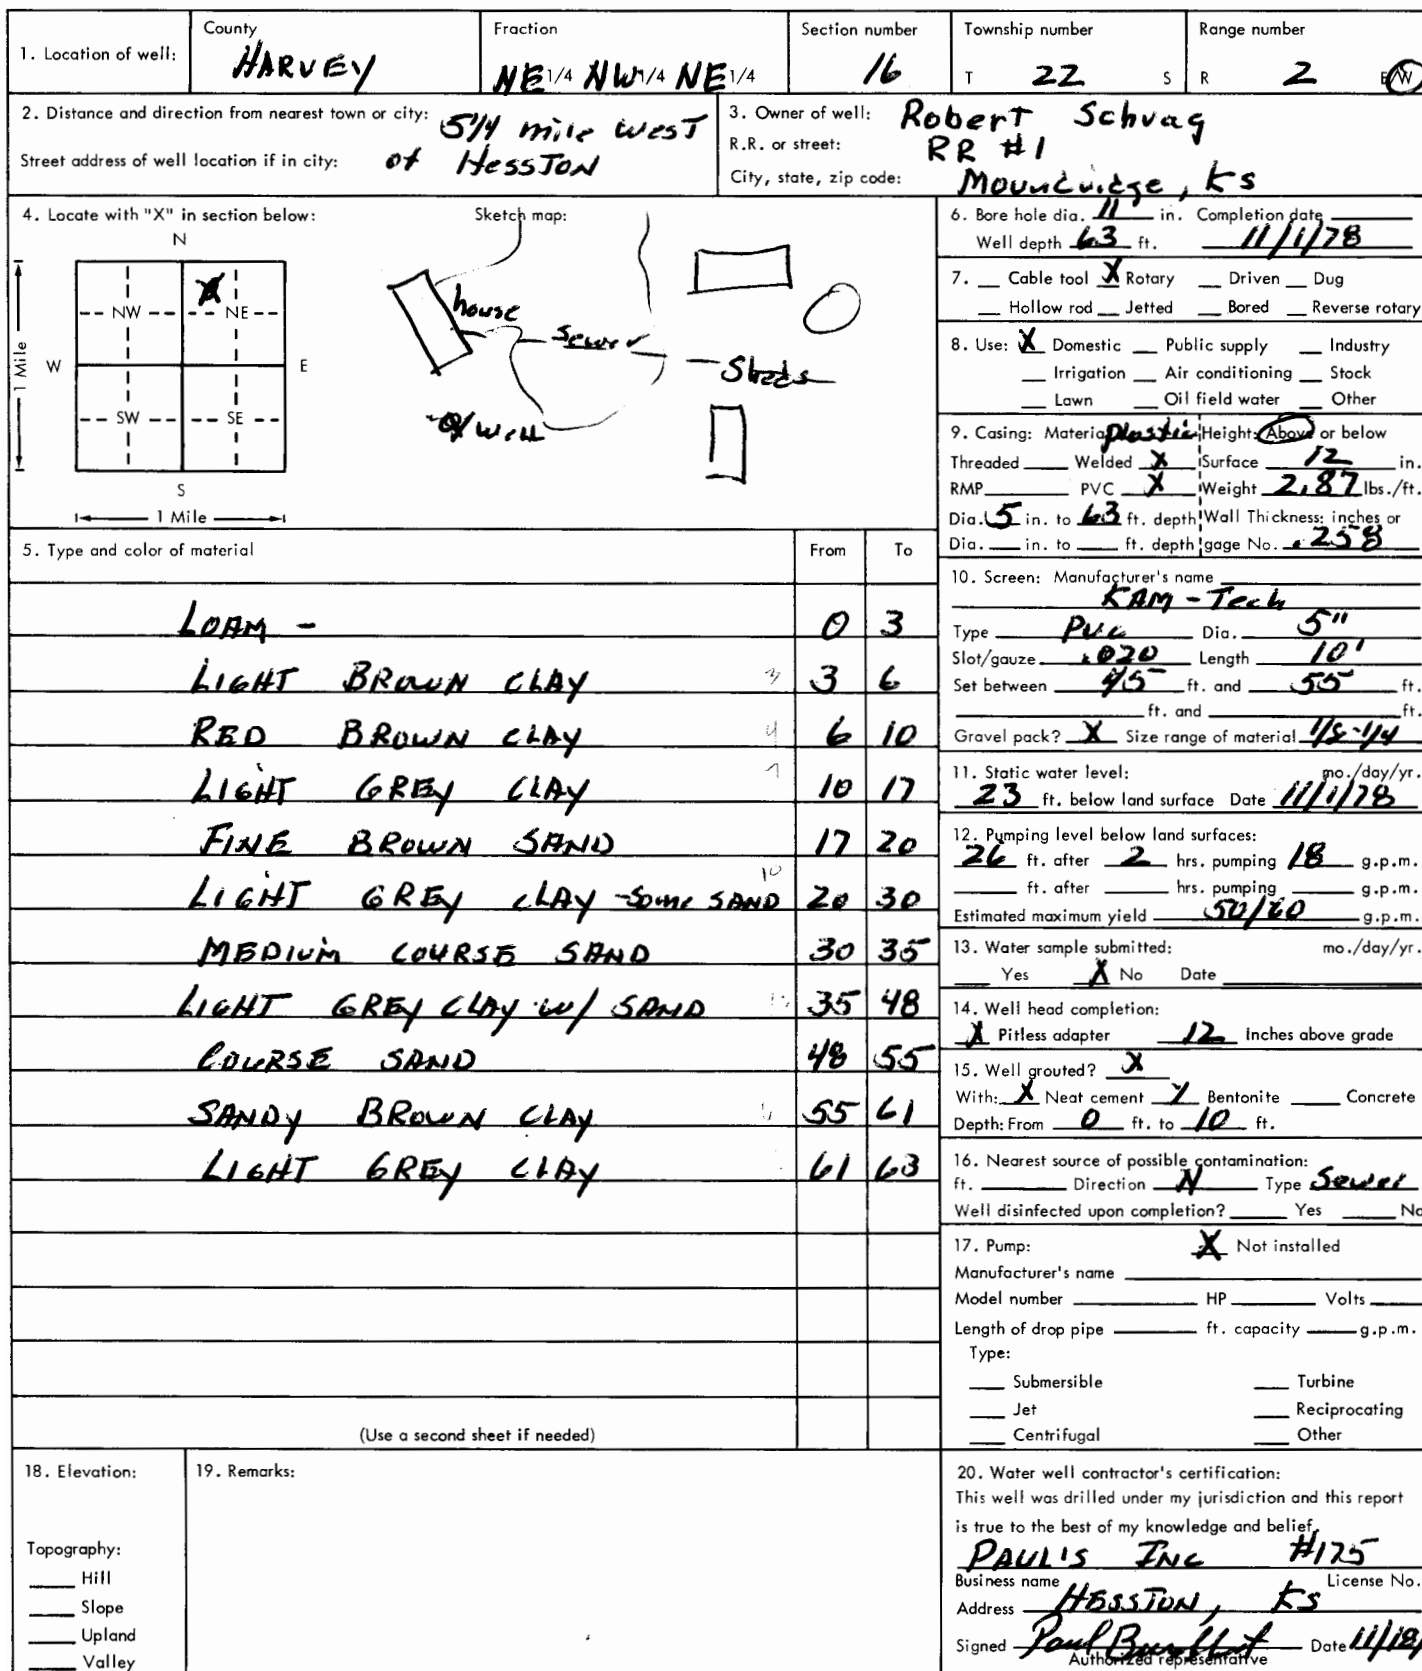 1. Location of well: County HARVEY Fraction NE 1/4 NW 1/4 NE 1/4 Section number 16 Township number T 22 S Range number R 2 E/W
2. Distance and direction from nearest town or city: 5 1/4 mile WEST
Street address of well location if in city: of HESSTON
3. Owner of well: Robert Schrag
R.R. or street: RR #1
City, state, zip code: Moundridge, KS
4. Locate with "X" in section below:
Sketch map:
N
X
NW NE
W E
SW SE
S
1 Mile
1 Mile
house
sewer
Sheds
well
5. Type and color of material From To
LOAM - 0 3
LIGHT BROWN CLAY 3 3 6
RED BROWN CLAY 4 6 10
LIGHT GREY CLAY 7 10 17
FINE BROWN SAND 17 20
LIGHT GREY CLAY - Some SAND 10 20 30
MEDIUM COURSE SAND 30 35
LIGHT GREY CLAY W/ SAND 13 35 48
COURSE SAND 48 55
SANDY BROWN CLAY 6 55 61
LIGHT GREY CLAY 61 63
(Use a second sheet if needed)
6. Bore hole dia. 11 in. Completion date
Well depth 63 ft. 11/1/78
7. Cable tool X Rotary Driven Dug
Hollow rod Jetted Bored Reverse rotary
8. Use: X Domestic Public supply Industry
Irrigation Air conditioning Stock
Lawn Oil field water Other
9. Casing: Material plastic Height: Above or below
Threaded Welded X Surface 12 in.
RMP PVC X Weight 2.87 lbs./ft.
Dia. 5 in. to 63 ft. depth Wall Thickness: inches or
Dia. in. to ft. depth gage No. .258
10. Screen: Manufacturer's name
KAM-Tech
Type PVC Dia. 5"
Slot/gauze .020 Length 10'
Set between 45 ft. and 55 ft.
ft. and ft.
Gravel pack? X Size range of material 1/8-1/4
11. Static water level: mo./day/yr.
23 ft. below land surface Date 11/1/78
12. Pumping level below land surfaces:
26 ft. after 2 hrs. pumping 18 g.p.m.
ft. after hrs. pumping g.p.m.
Estimated maximum yield 50/60 g.p.m.
13. Water sample submitted: mo./day/yr.
Yes X No Date
14. Well head completion:
X Pitless adapter 12 Inches above grade
15. Well grouted? X
With: X Neat cement X Bentonite Concrete
Depth: From 0 ft. to 10 ft.
16. Nearest source of possible contamination:
ft. Direction N Type Sewer
Well disinfected upon completion? Yes No
17. Pump: X Not installed
Manufacturer's name
Model number HP Volts
Length of drop pipe ft. capacity g.p.m.
Type:
Submersible Turbine
Jet Reciprocating
Centrifugal Other
18. Elevation:
Topography:
Hill
Slope
Upland
Valley
19. Remarks:
20. Water well contractor's certification:
This well was drilled under my jurisdiction and this report
is true to the best of my knowledge and belief.
PAUL'S INC #175
Business name License No.
Address HESSTON, KS
Signed Paul Date 11/18/
Authorized representative